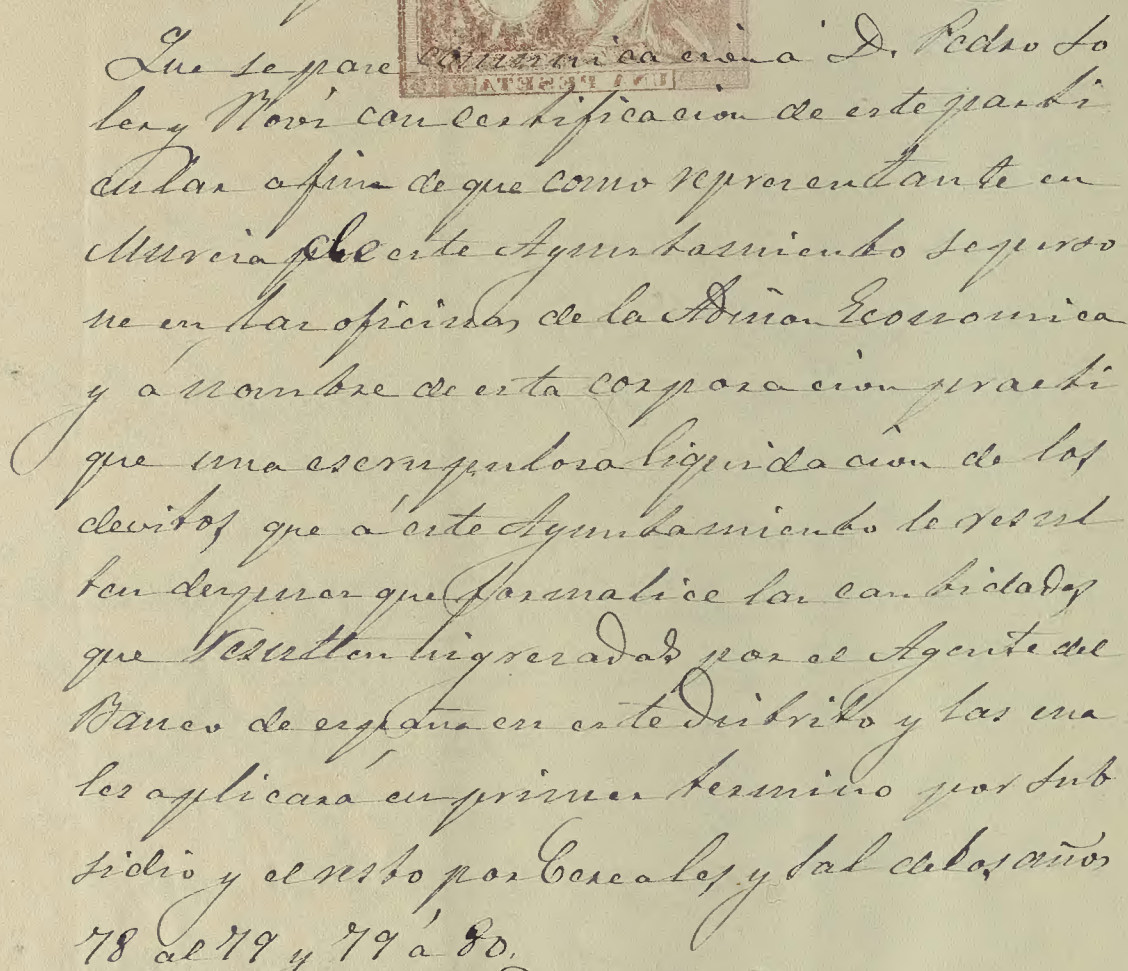 Que se pase comunicacion á D. Pedro So
ler y Noví con certificacion de este parti
cular a fin de que como representante en
Murcia de este Ayuntamiento se perso
ne en las oficinas de la Admon Economica
y á nombre de esta corporacion practi
que una escrupulosa liquidacion de los
devitos que á este Ayuntamiento le resul
ten despues que formalice las cantidades
que resulten ingresadas por el Agente del
Banco de españa en este Distrito y las cua
les aplicará en primer termino por sub
sidio y el resto por Cereales y Sal de los años
78 al 79 y 79 á 80.